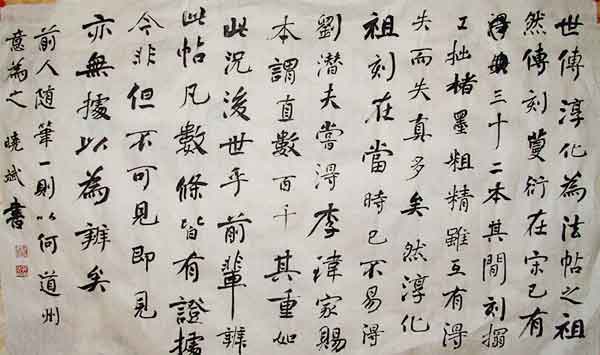 世傳淳化為法帖之祖
然傳刻蔓衍在宋已有
三十二本其間刻搨
工拙楮墨粗精雖互有得
失而失真多矣然淳化
祖刻在當時已不易得
劉潛夫嘗得李瑋家賜
本謂直數百千其重如
此況後世乎前輩辨
此帖凡數條皆有證據
今非但不可見即見
亦無據以為辨矣
前人随筆一則以何道州
意為之 曉斌書